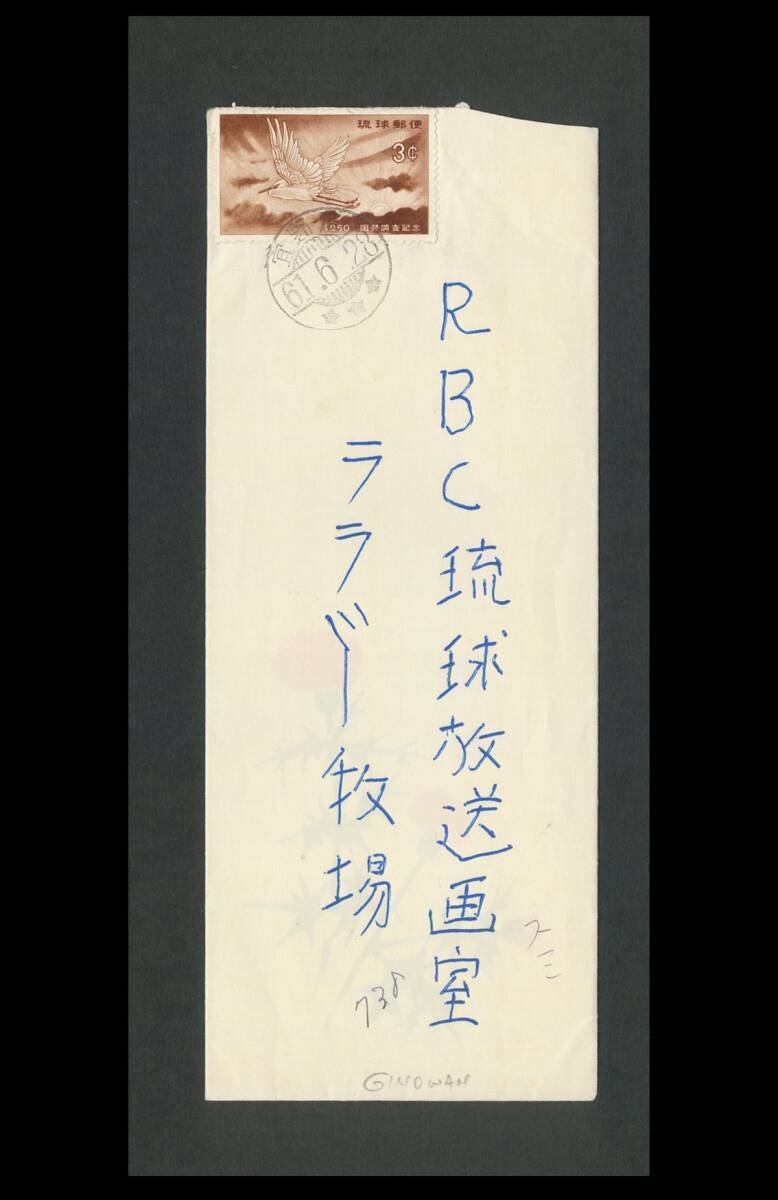 琉球郵便
3¢
1960 国勢調査記念
宜野
61.6.28
RBC琉球放送画室
ララバー牧場
738
GINOWAN